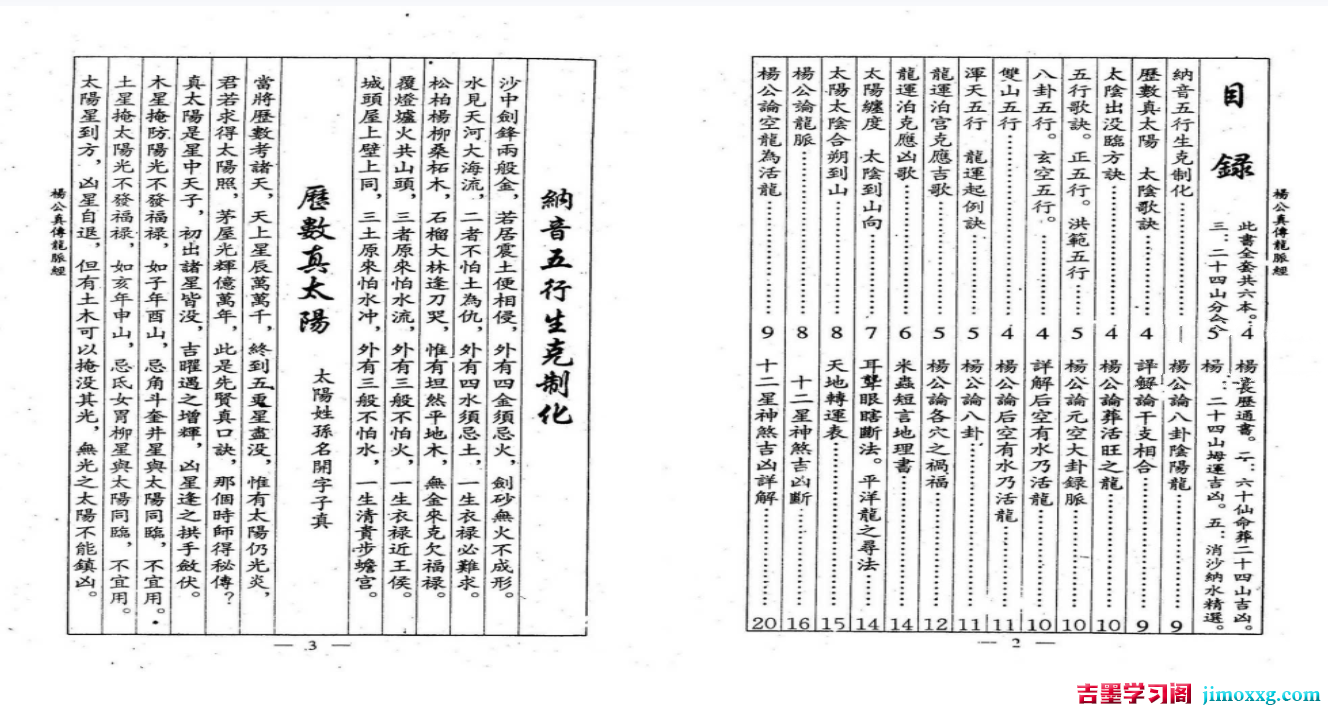 楊公真傳龍脈經
目錄
此書全套共六本。
楊義歷通書。二：六十仙命葬二十四山吉凶。
三：二十四山分金
楊：二十四山坶運吉凶。五：消沙納水精選。
納音五行生克制化
5
楊公論八卦陰陽龍……9
歷數真太陽 太陰歌訣……4
詳解論干支相合……9
太陰出没臨方訣……4
楊公論葬活旺之龍……10
五行歌訣。正五行。洪範五行……5
楊公論元空大卦録脈……10
八卦五行。玄空五行。……4
詳解后空有水乃活龍……10
雙山五行……4
楊公論后空有水乃活龍……11
渾天五行 龍運起例訣……5
楊公論八卦……11
龍運泊宮克應吉歌……5
楊公論各穴之禍福……12
龍運泊克應凶歌……6
米蟲短言地理書……14
太陽纏度 太陰到山向……7
耳聾眼瞎斷法。平洋龍之尋法……14
太陽太陰合朔到山……8
天地轉運表……15
楊公論龍脈……8
十二星神煞吉凶斷……16
楊公論空龍為活龍……9
十二星神煞吉凶詳解……20
— 2 —
納音五行生克制化
沙中劍鋒兩般金，若居震土便相侵，外有四金須忌火，劍砂無火不成形。
水見天河大海流，二者不怕土為仇，外有四水須忌土，一生衣禄必難求。
松柏楊柳桑柘木，石榴大林逢刀哭，惟有坦然平地木，無金來克欠福禄。
覆燈爐火共山頭，三者原來怕水流，外有三般不怕火，一生衣禄近王侯。
城頭屋上壁上同，三土原來怕水冲，外有三般不怕水，一生清貴步蟾宫。
歷數真太陽 太陽姓孫名開字子真
當將歷數考諸天，天上星辰萬萬千，終到五更星盡没，惟有太陽仍光炎，
君若求得太陽照，茅屋光輝億萬年，此是先賢真口訣，那個時師得秘傳？
真太陽是星中天子，初出諸星皆没，吉曜遇之增輝，凶星逢之拱手斂伏。
木星掩防陽光不發福禄，如子年酉山，忌角斗奎井星與太陽同臨，不宜用。
土星掩太陽光不發福禄，如亥年申山，忌氐女胃柳星與太陽同臨，不宜用。
太陽星到方，凶星自退，但有土木可以掩没其光，無光之太陽不能鎮凶。
楊公真傳龍脈經
— 3 —
吉墨学习阁 jimoxxg.com